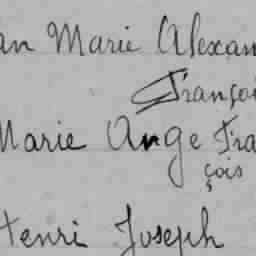 an Marie Alexan
Françoi
Marie Ange Fra
çois
Henri Joseph